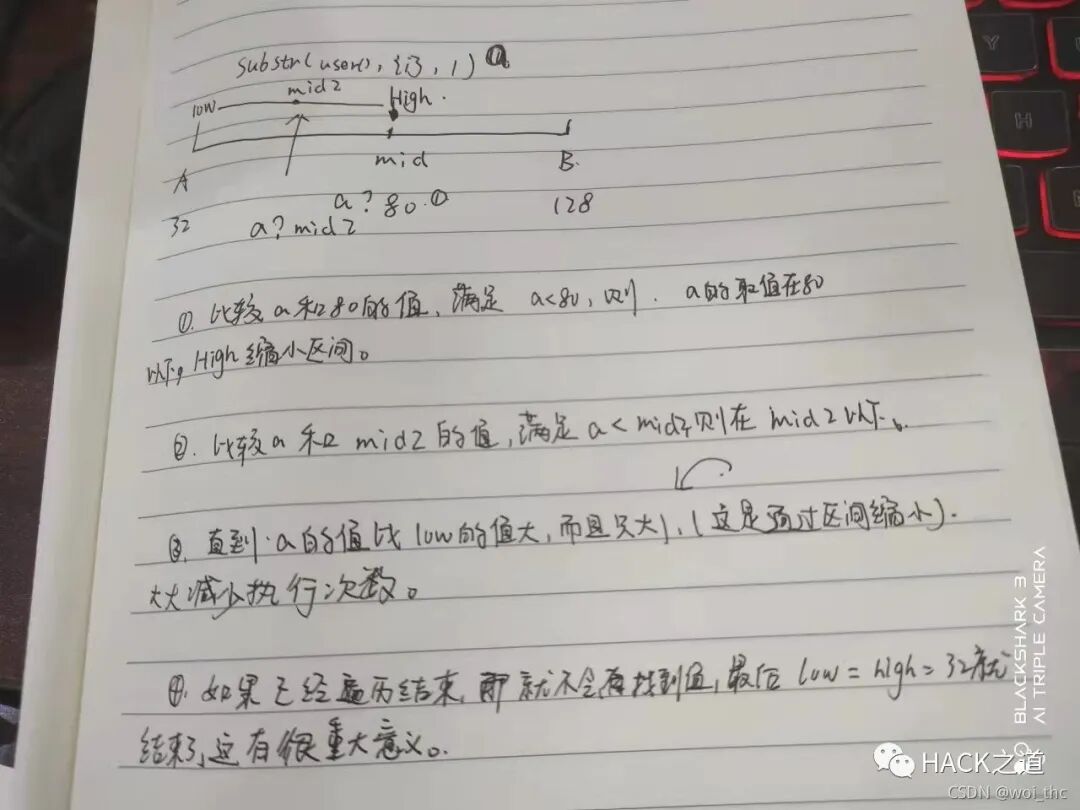 substr(user(), {i}, 1) a
low mid2 High.
mid
A B.
32 a? 80. ① 128
a? mid2
①. 比较a和80的值, 满足 a<80, 则. a的取值在80
以下, High缩小区间。
②. 比较a 和 mid2的值, 满足a<mid2则在 mid2以下。
③. 直到.a的值比 low的值大, 而且只大1, (这是通过区间缩小).
大大减少执行次数。
④. 如果已经遍历结束, 即就不会再找到值, 最后 low = high = 32就
结束了, 这有很重大意义。
BLACKSHARK 3
AI TRIPLE CAMERA
HACK之道
CSDN @woi_thc
Y
H